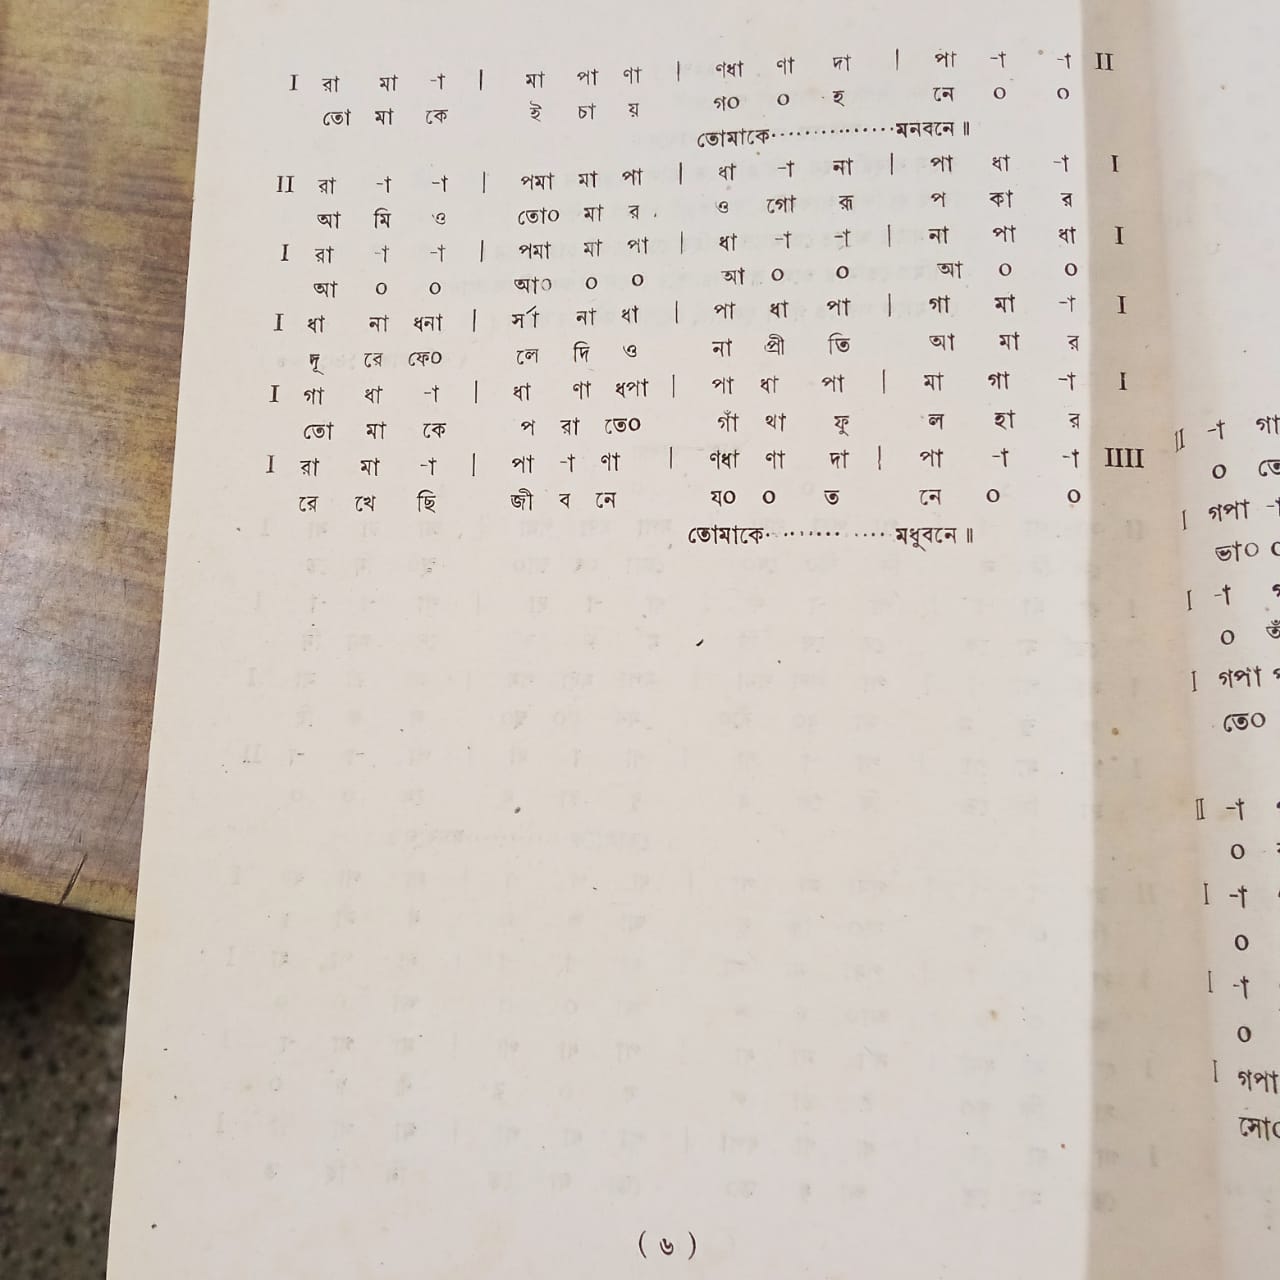 I রা মা -া | মা পা ণা | ণধা ণা দা | পা -া -া II
তো মা কে ই চা য় গ০ ০ হ নে ০ ০
তোমাকে...............মনবনে॥
II রা -া -া | পমা মা পা | ধা -া না | পা ধা -া I
আ মি ও তো০ মা র ও গো রূ প কা র
I রা -া -া | পমা মা পা | ধা -া -া | না পা ধা I
আ ০ ০ আ০ ০ ০ আ ০ ০ আ ০ ০
I ধা না ধনা | র্সা না ধা | পা ধা পা | গা মা -া I
দূ রে ফে০ লে দি ও না প্রী তি আ মা র
I গা ধা -া | ধা ণা ধপা | পা ধা পা | মা গা -া I
তো মা কে প রা তে০ গাঁ থা ফু ল হা র
I রা মা -া | পা -া ণা | ণধা ণা দা | পা -া -া IIII
রে খে ছি জী ব নে য০ ০ ত নে ০ ০
তোমাকে.............মধুবনে॥
( ৬ )
II -া গা
০
I গপা -া
ভা০ ০
I -া
০
I গপা
তে০
II -া
০
I -া
০
I -া
০
I গপা